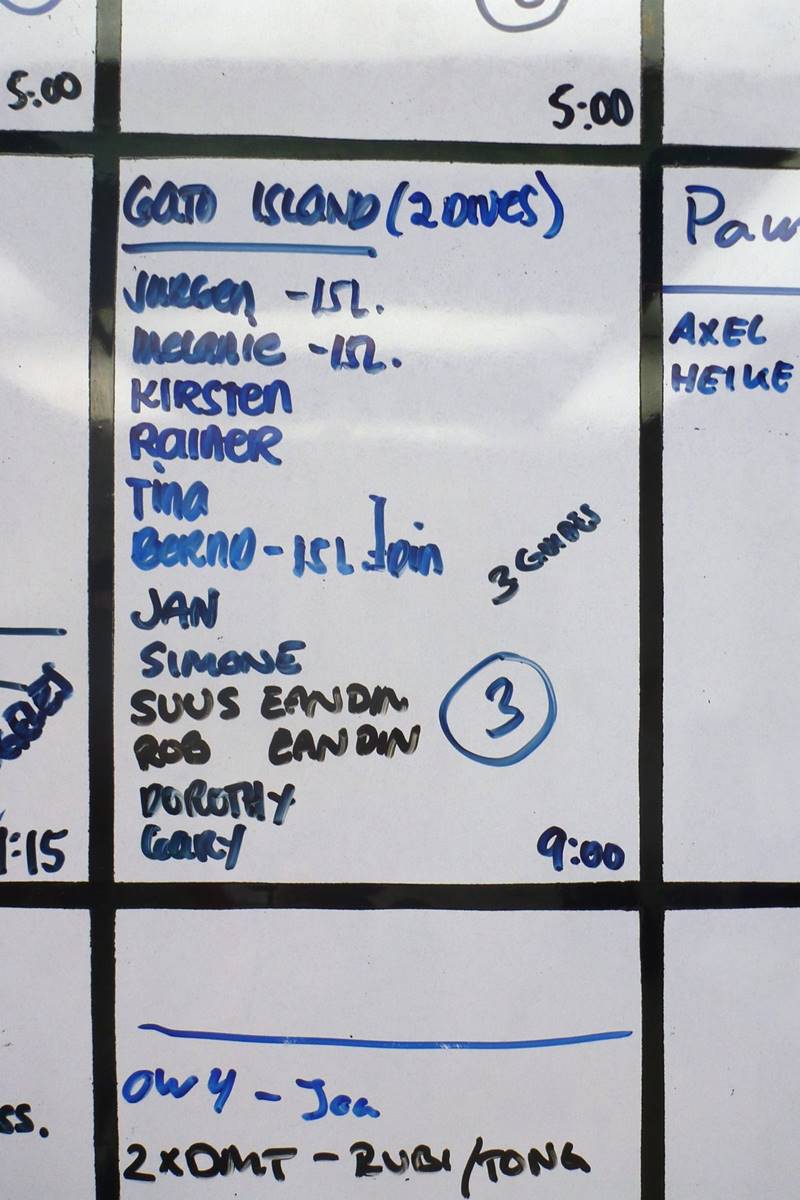 5:00
5:00
GATO ISLAND (2 DIVES)
JURGEN - 15L.
MELANIE - 15L.
KIRSTEN
RAINER
TINA
BERND - 15L Din
JAN
SIMONE
SUUS EANDIN
ROB EANDIN
DOROTHY
GARY
3 GUIDES
3
9:00
Paw
AXEL
HEIKE
1:15
OW 4 - Joa
2xDMT - RUBI/TONG
ss.